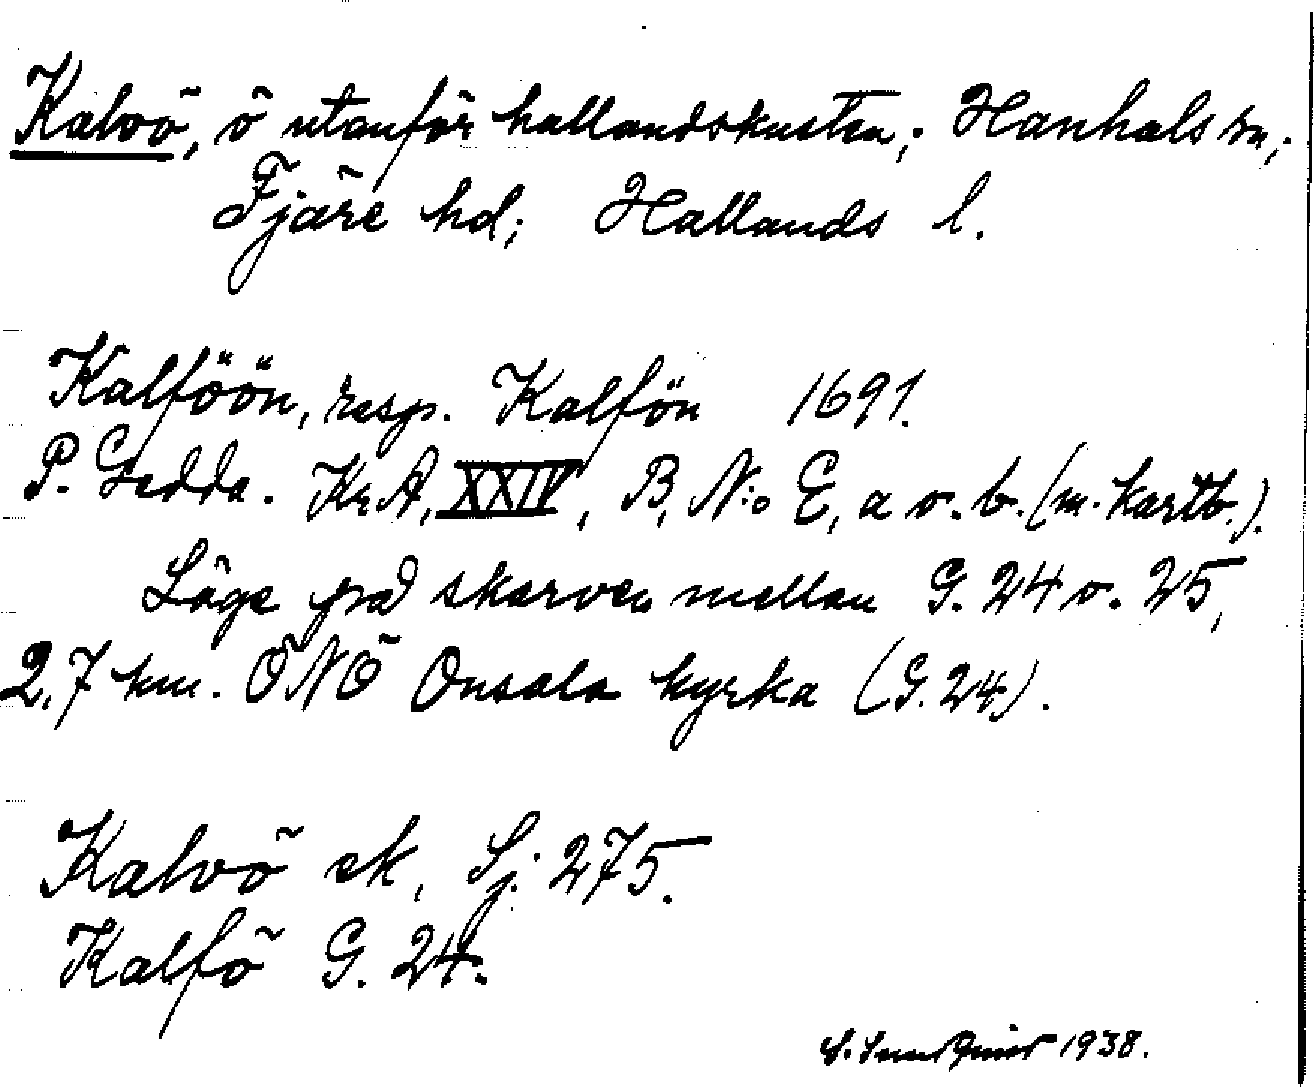 Kalvö, ö utanför hallandskusten; Hanhals sn,
Fjäre hd; Hallands l.
Kalföön, resp. Kalfön 1691.
P. Gedda. Kr.A, XXIV, B, N:o E, a o. b. (m. kartb.).
Läge på skarven mellan G. 24 o. 25,
2,7 km. ÖNÖ Onsala kyrka (G. 24).
Kalvö ek, Sj. 275.
Kalfö G. 24.
1938.